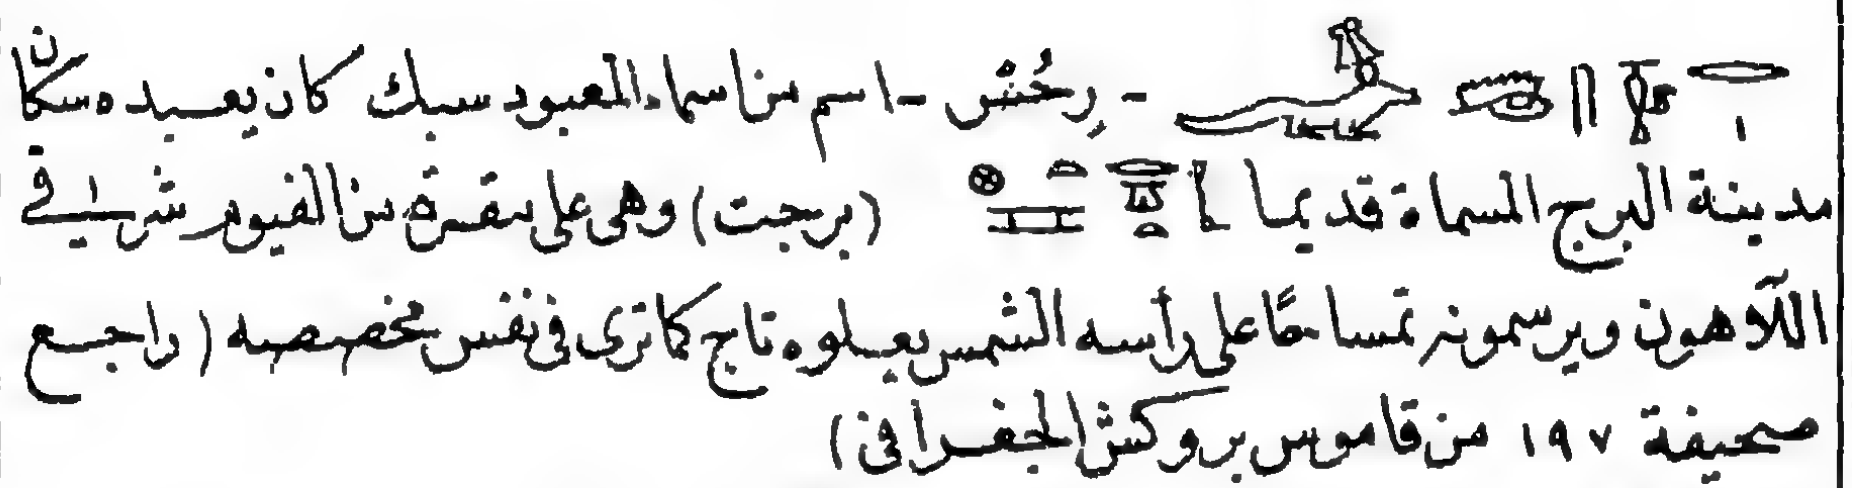 - رِحُنْس - اسم من اسماء المعبود سبك كان يعبده سكان
مدينة البرج المسماة قديما (برجت) وهى على مقربة من الفيوم شرقى
اللآهون ويرسمونه تمساحًا على رأسه الشمس يعلوه تاج كما ترى فى نفس مخصصه (راجع
صحيفة ١٩٧ من قاموس بروكش الجغرافى)